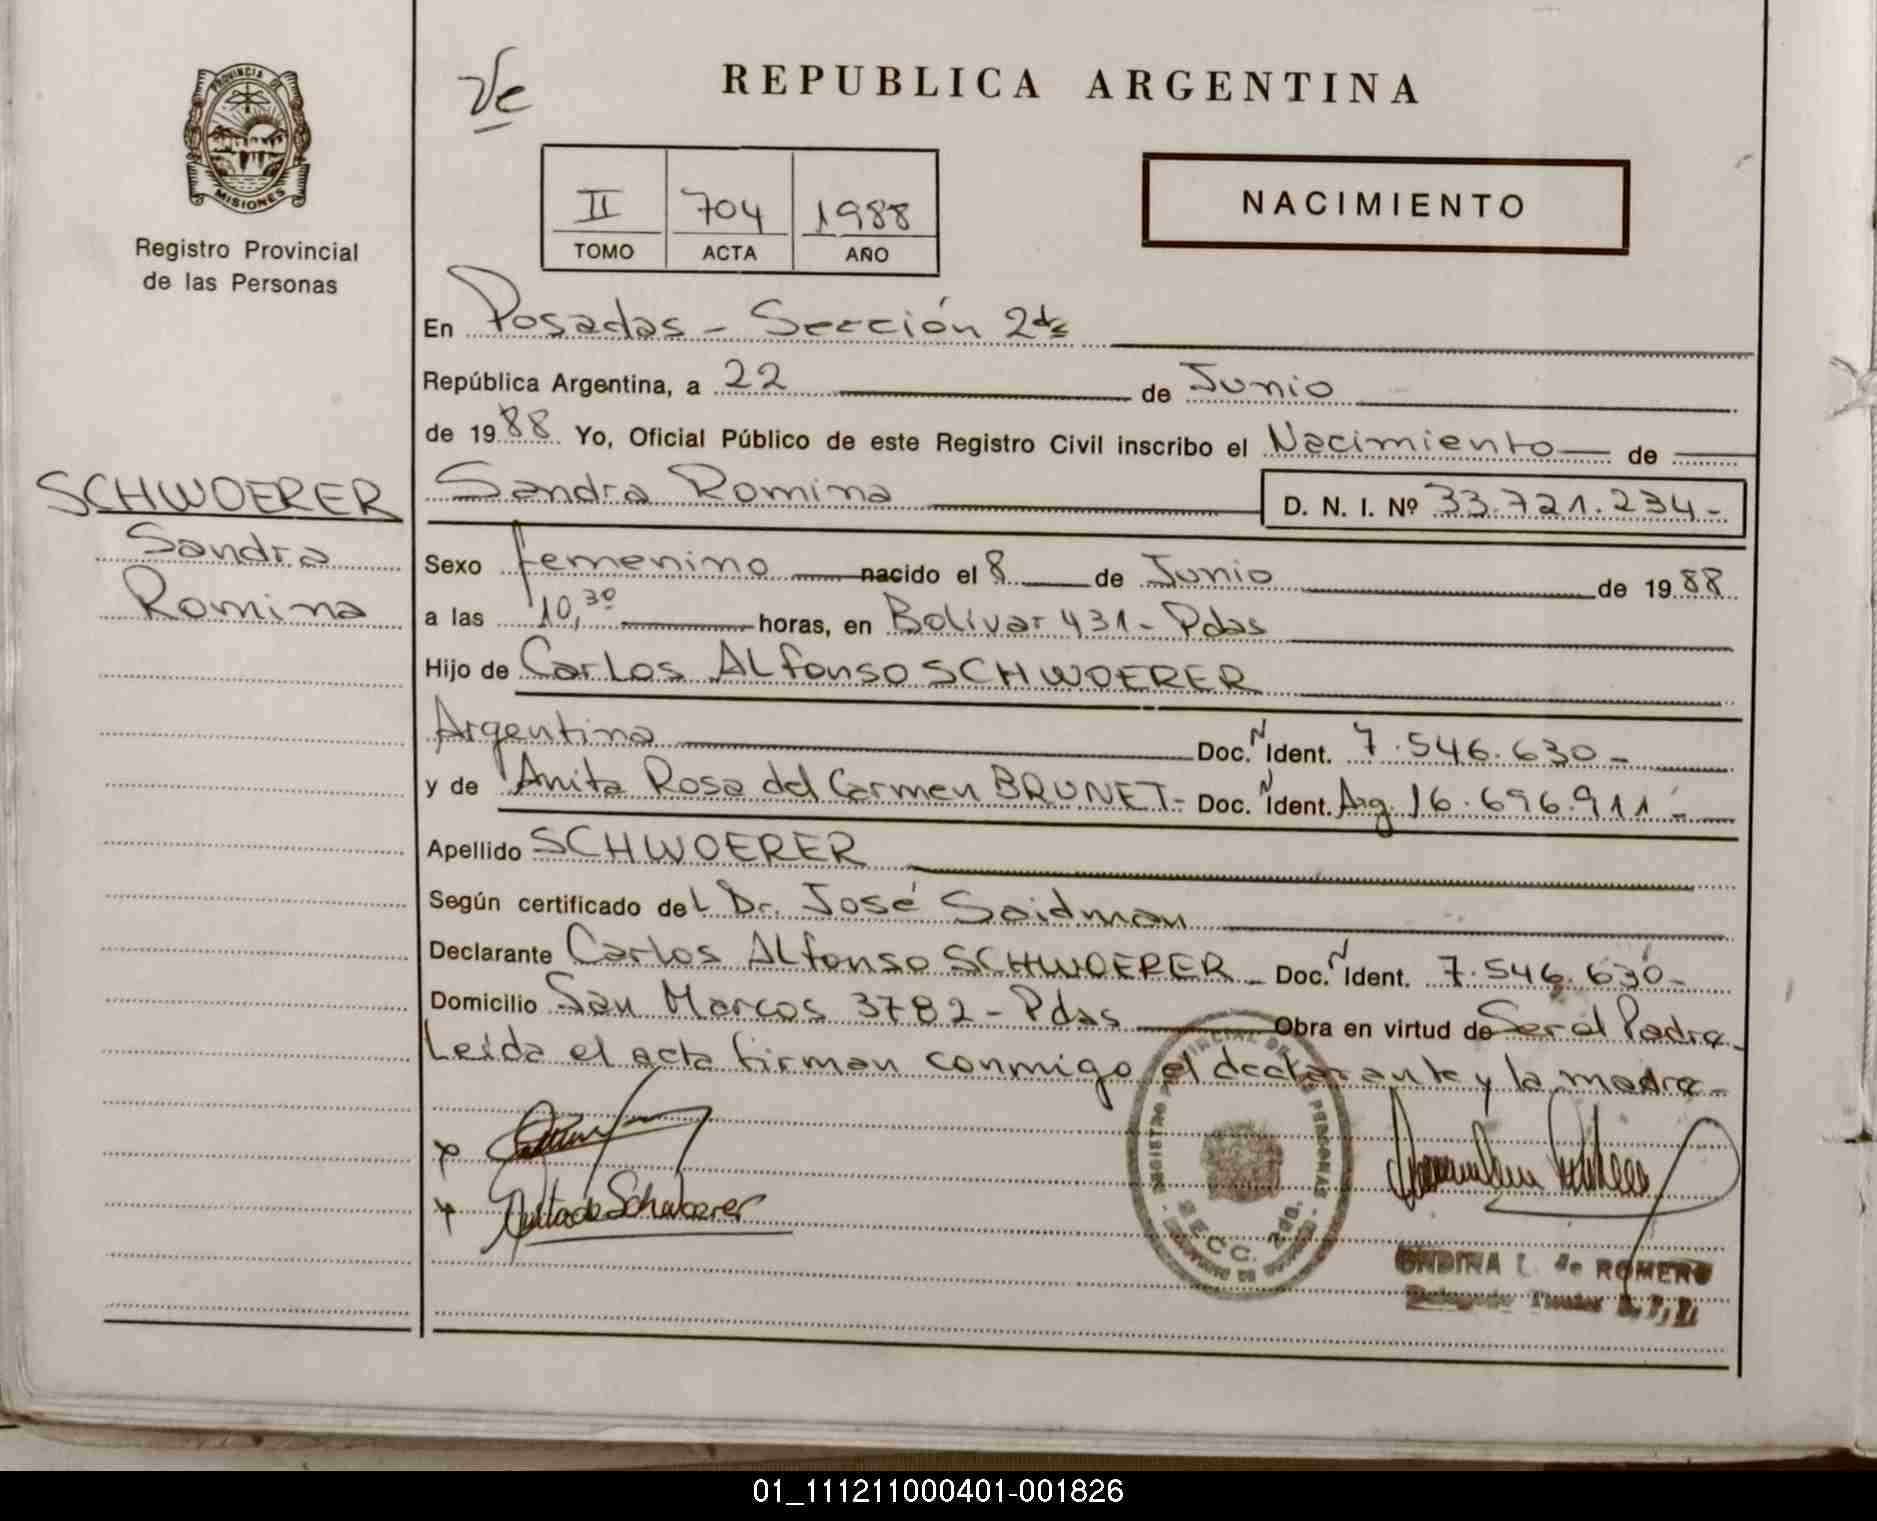 PROVINCIA DE
MISIONES
Registro Provincial
de las Personas
SCHWOERER
Sandra
Romina
Ve
REPUBLICA ARGENTINA
II 704 1988
TOMO ACTA AÑO
NACIMIENTO
En Posadas - Sección 2da
República Argentina, a 22 de Junio
de 1988 Yo, Oficial Público de este Registro Civil inscribo el Nacimiento de
Sandra Romina D. N. I. Nº 33.721.234-
Sexo femenino nacido el 8 de Junio de 1988
a las 10,30 horas, en Bolívar 431 - Pdas
Hijo de Carlos ALfonso SCHWOERER
Argentina Doc. N Ident. 7.546.630-
y de Anita Rosa del Carmen BRUNET- Doc. N Ident. Arg. 16.696.911-
Apellido SCHWOERER
Según certificado del Dr. José Saidman
Declarante Carlos ALfonso SCHWOERER - Doc. N Ident. 7.546.630-
Domicilio San Marcos 3782 - Pdas Obra en virtud de Ser el Padre
Leída el acta firman conmigo el declarante y la madre-
REGISTRO PROVINCIAL DE LAS PERSONAS
SECC. 2da.
Anita de Schwoerer
ONDINA L. de ROMERO
01_111211000401-001826